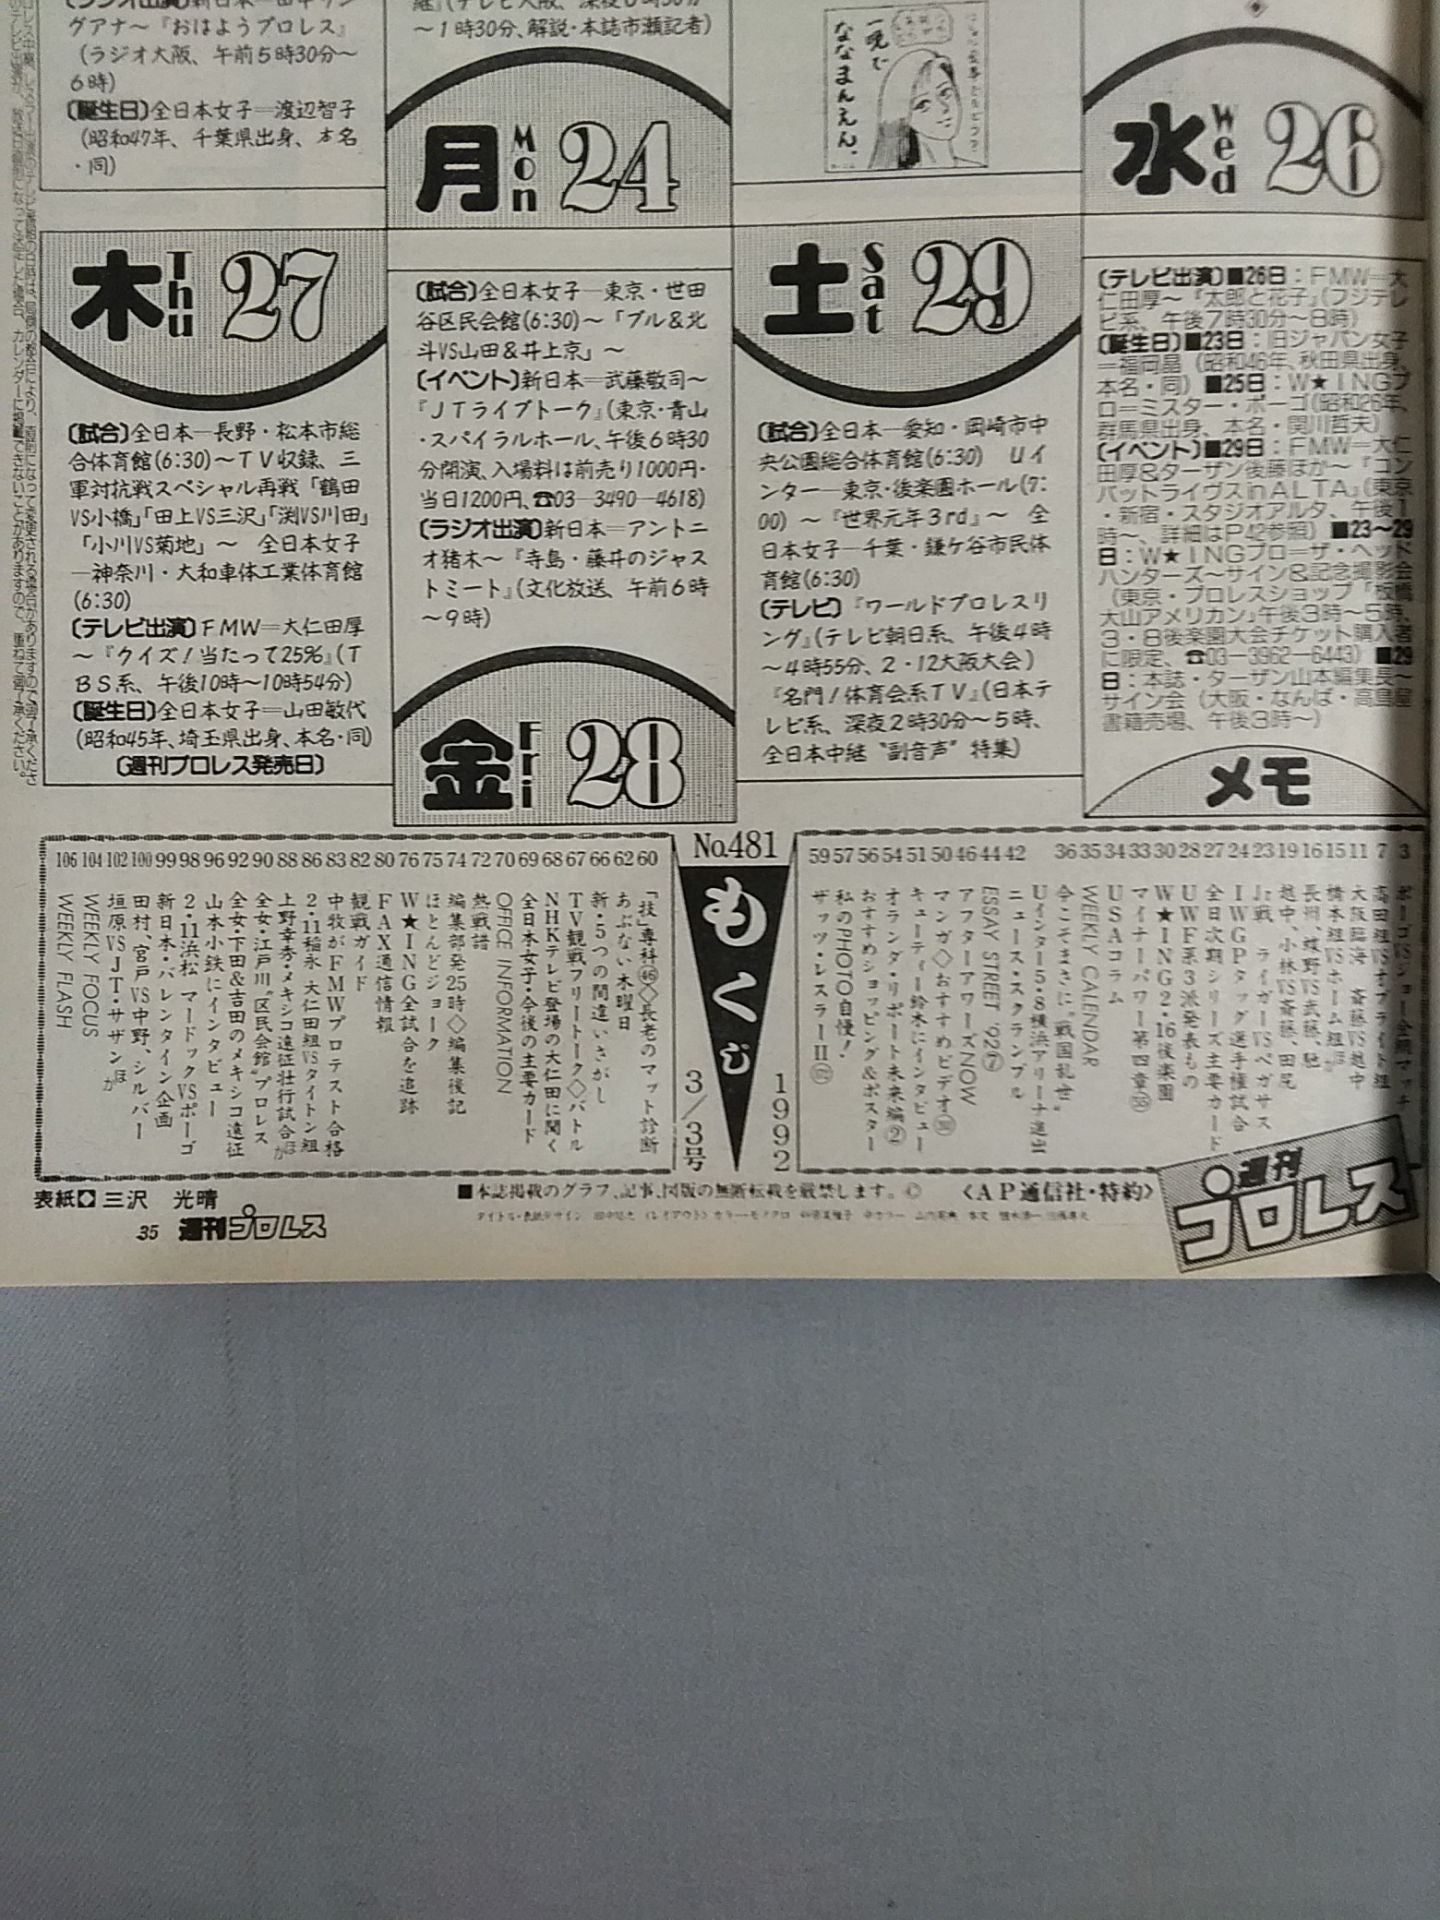 グアナ〜『おはようプロレス』
(ラジオ大阪、午前5時30分〜
6時)
〔誕生日〕全日本女子＝渡辺智子
(昭和47年、千葉県出身、本名
・同)
〜1時30分、解説・本誌市瀬記者)
月 Mon 24
一晩で
ななまんえん.
水 Wed 26
木 Thu 27
〔試合〕全日本―長野・松本市総
合体育館(6:30)〜TV収録、三
軍対抗戦スペシャル再戦「鶴田
VS小橋」「田上VS三沢」「渕VS川田」
「小川VS菊地」〜 全日本女子
―神奈川・大和車体工業体育館
(6:30)
〔テレビ出演〕FMW＝大仁田厚
〜『クイズ!当たって25%』(T
BS系、午後10時〜10時54分)
〔誕生日〕全日本女子＝山田敏代
(昭和45年、埼玉県出身、本名・同)
〔週刊プロレス発売日〕
〔試合〕全日本女子―東京・世田
谷区民会館(6:30)〜「ブル&北
斗VS山田&井上京」〜
〔イベント〕新日本＝武藤敬司〜
『JTライブトーク』(東京・青山
・スパイラルホール、午後6時30
分開演、入場料は前売り1000円・
当日1200円、☎03―3490―4618)
〔ラジオ出演〕新日本＝アントニ
オ猪木〜『寺島・藤井のジャス
トミート』(文化放送、午前6時
〜9時)
金 Fri 28
土 Sat 29
〔試合〕全日本―愛知・岡崎市中
央公園総合体育館(6:30) Uイ
ンター―東京・後楽園ホール(7:
00)〜『世界元年3rd』〜 全
日本女子―千葉・鎌ケ谷市民体
育館(6:30)
〔テレビ〕『ワールドプロレスリ
ング』(テレビ朝日系、午後4時
〜4時55分、2・12大阪大会)
『名門!体育会系TV』(日本テ
レビ系、深夜2時30分〜5時、
全日本中継“副音声”特集)
〔テレビ出演〕■26日：FMW＝大
仁田厚〜『太郎と花子』(フジテレ
ビ系、午後7時30分〜8時)
〔誕生日〕■23日：旧ジャパン女子
＝福岡晶(昭和46年、秋田県出身、
本名・同)■25日：W★INGプ
ロ＝ミスター・ポーゴ(昭和26年、
群馬県出身、本名・関川哲夫)
〔イベント〕■29日：FMW＝大仁
田厚&ターザン後藤ほか〜『コン
バットライヴスinALTA』(東京
・新宿・スタジオアルタ、午後1
時〜、詳細はP42参照)■23〜29
日：W★INGプロ＝ザ・ヘッド
ハンターズ〜サイン&記念撮影会
(東京・プロレスショップ「板橋
大山アメリカン」午後3時〜5時、
3・8後楽園大会チケット購入者
に限定、☎03―3962―6443)■29
日：本誌・ターザン山本編集長〜
サイン会(大阪・なんば・高島屋
書籍売場、午後3時〜)
メモ
No.481
もくじ
1992
3/3号
3 ポーゴVSジョー金網マッチ
7 高田組VSオブライト組
11 大阪臨海 斎藤VS越中
15 橋本組VSホーム組ほか
16 長州、蝶野VS武藤、馳
19 越中、小林VS斎藤、田尻
23 Jr.戦 ライガーVSペガサス
24 IWGPタッグ選手権試合
27 全日次期シリーズ主要カード
28 UWF系3派発表もの
30 W★ING2・16後楽園
33 マイナーパワー第四章
34 USAコラム
35 WEEKLY CALENDAR
36 今こそまさに“戦国乱世”
Uインター5・8横浜アリーナ進出
42 ニュース・スクランブル
44 ESSAY STREET '92⑦
46 アフターアワーズNOW
50 マンガ◇おすすめビデオ
51 キューティー鈴木にインタビュー
54 オランダ・リポート未来編②
56 おすすめショッピング&ポスター
57 私のPHOTO自慢!
59 ザッツ・レスラーII
60 「技」専科㊻◇長老のマット診断
62 あぶない木曜日
66 新・5つの間違いさがし
67 TV観戦フリートーク◇バトル
68 NHKテレビ登場の大仁田に聞く
69 全日本女子・今後の主要カード
70 OFFICE INFORMATION
72 熱戦譜
74 編集部発25時◇編集後記
75 ほとんどジョーク
76 W★ING全試合を追跡
80 FAX通信情報
82 観戦ガイド
83 中牧がFMWプロテスト合格
86 2・11稲永 大仁田組VSタイトン組
88 上野幸秀・メキシコ遠征壮行試合ほか
90 全女・江戸川“区民会館”プロレス
92 全女・下田&吉田のメキシコ遠征
96 山本小鉄にインタビュー
98 2・11浜松 マードックVSポーゴ
99 新日本・バレンタイン企画
100 田村、宮戸VS中野、シルバー
102 垣原VSJT・サザンほか
104 WEEKLY FOCUS
106 WEEKLY FLASH
表紙◆三沢 光晴
■本誌掲載のグラフ、記事、図版の無断転載を厳禁します。© 〈AP通信社・特約〉
35 週刊プロレス
週刊プロレス